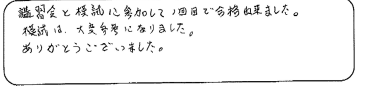 講習会と模試に参加して1回目で合格出来ました。
模試は、大変参考になりました。
ありがとうございました。